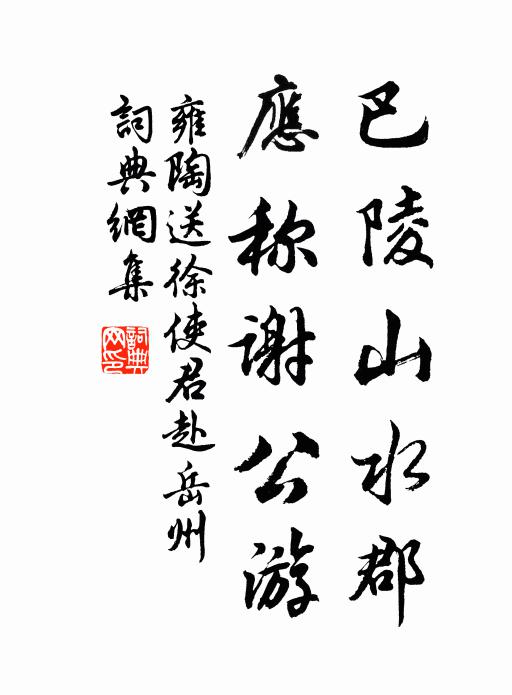 巴陵山水郡
應称謝公游
雍陶送徐使君赴岳州
詞典網集
詞典網印